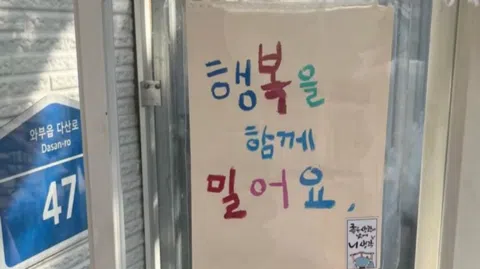 와부읍 다산로
Dasan-ro
47
행복을
함께
밀어요.